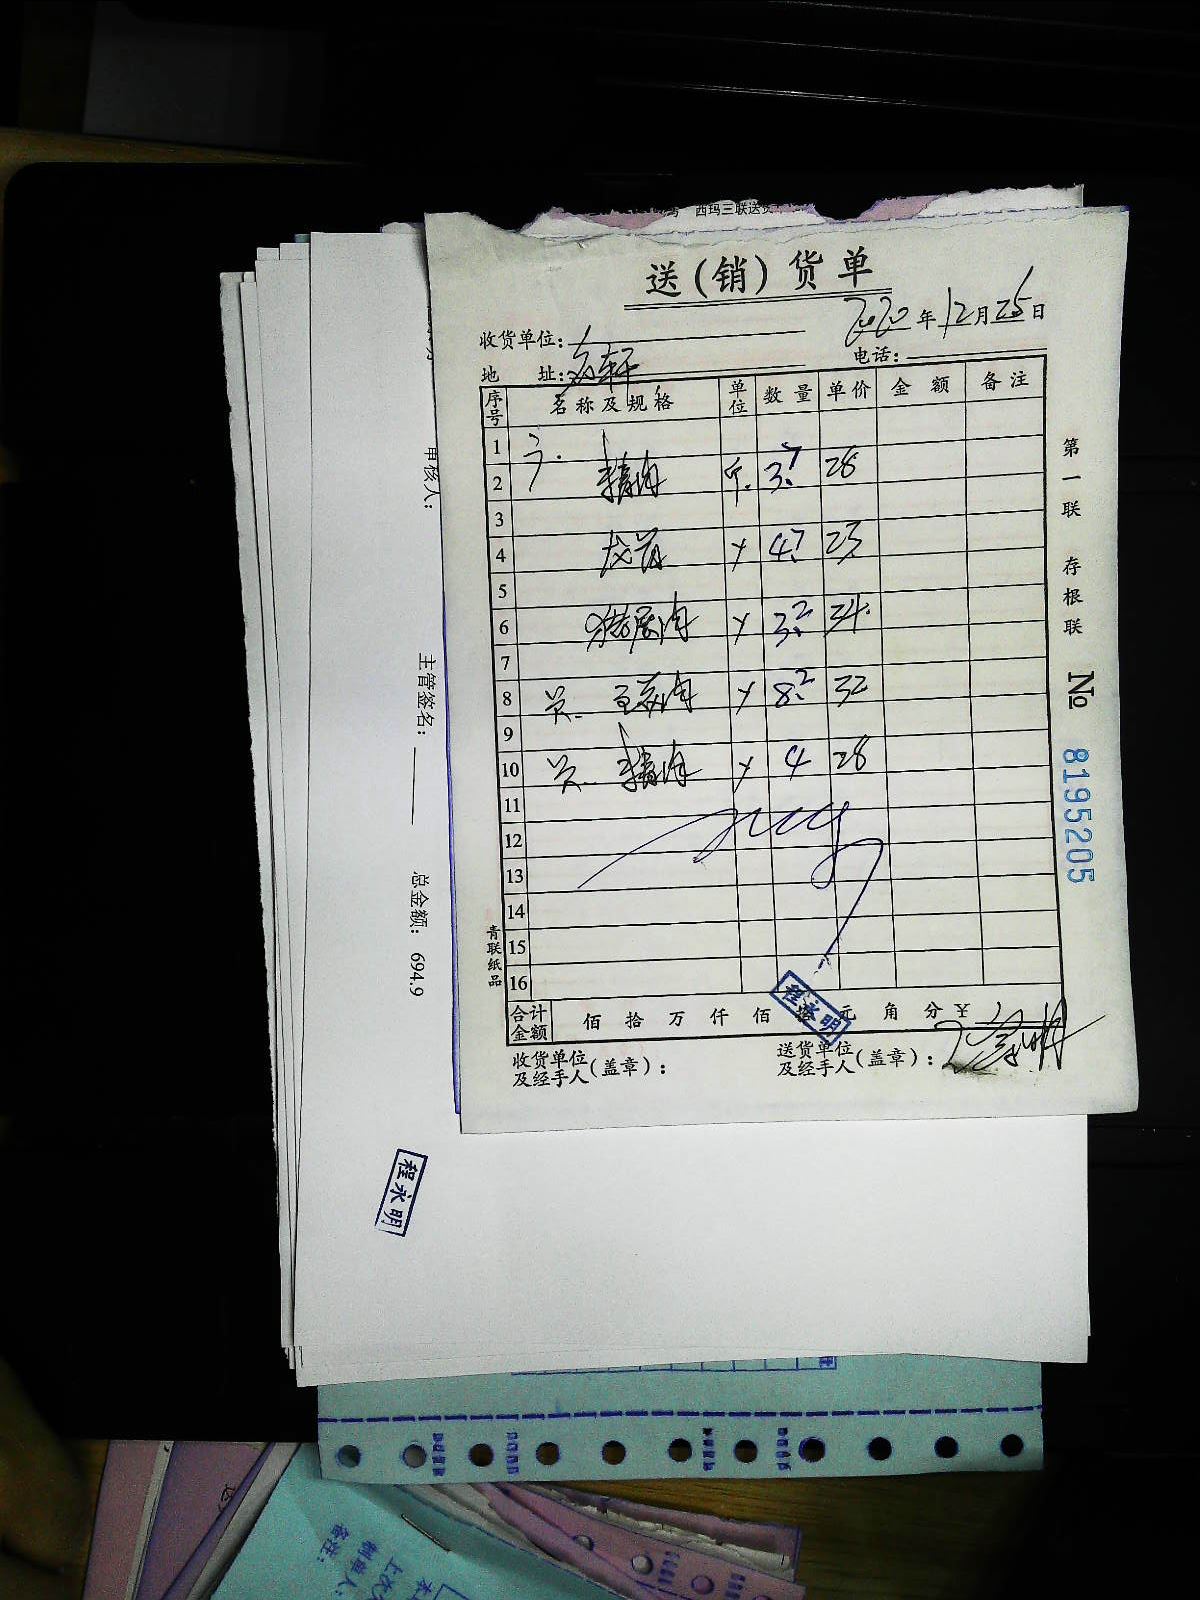 西玛三联送货单
送(销)货单
2020年12月25日
收货单位:
电话:
地 址:
序号 名称及规格 单位 数量 单价 金额 备注
1
2 精肉 斤 3.7 28
3
4 龙骨 〃 4.7 23
5
6 猪展肉 〃 3.2 34.
7
8 员. 五花肉 〃 8.2 32
9
10 员. 精肉 〃 4 28
11
12
13
14
15
16
合计金额 佰 拾 万 仟 佰 拾 元 角 分 ¥
收货单位及经手人(盖章):
送货单位及经手人(盖章):
程永明
青联纸品
第一联 存根联
№ 8195205
审核人:
主管签名:
总金额: 694.9
程永明
备注:
制单人: